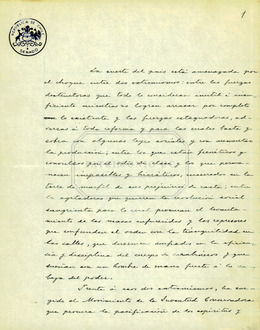 1
REPUBLICA DE CHILE
SENADO
La suerte del país está amenazada por
el choque entre dos extremismos: entre las fuerzas
destructoras que todo lo consideran inútil e inso-
ficiente mientras no logren arrasar por completo
lo existente y las fuerzas retaguardias, ad-
versas a toda reforma y para las cuales basta y
sobra con algunas leyes sociales y un aumento
la producción, entre los que están frenéticos y
convulsos por el odio de clase y los que perma-
necen impasibles y hieráticos, encerrados en la
torre de marfil de sus prejuicios de casta, entre
los agitadores que quieren la revolución social
sangrienta para lo cual promueven el levanta-
miento de las masas enfurecidas y los represores
que confunden el orden con la tranquilidad en
las calles, que duermen confiados en la eficien-
cia y disciplina del cuerpo de carabineros y que
sueñan con un hombre de mano fuerte a la ca-
beza del poder.
Frente a esos dos extremismos, ha sur-
gido el Movimiento de la Juventud Conservadora
que procura la pacificación de los espíritus y